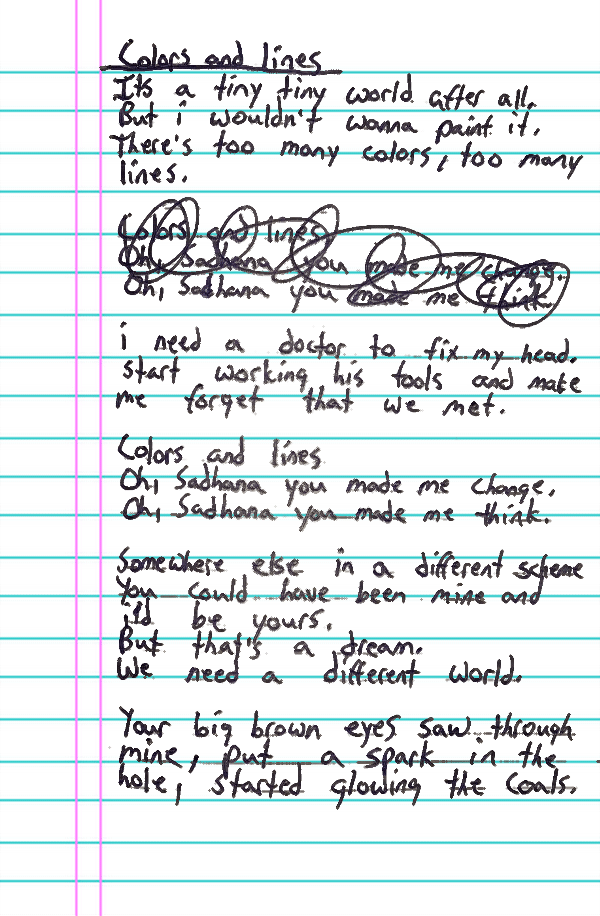 Colors and lines
Its a tiny tiny world after all.
But i wouldn't wanna paint it.
There's too many colors, too many
lines.
Colors and lines
Oh, Sadhana you made me change.
Oh, Sadhana you made me think
i need a doctor to fix my head.
start working his tools and make
me forget that we met.
Colors and lines
Oh, Sadhana you made me change.
Oh, Sadhana you made me think.
Somewhere else in a different scheme
You could have been mine and
i'd be yours.
But that's a dream.
We need a different world.
Your big brown eyes saw through
mine, put a spark in the
hole, started glowing the coals.